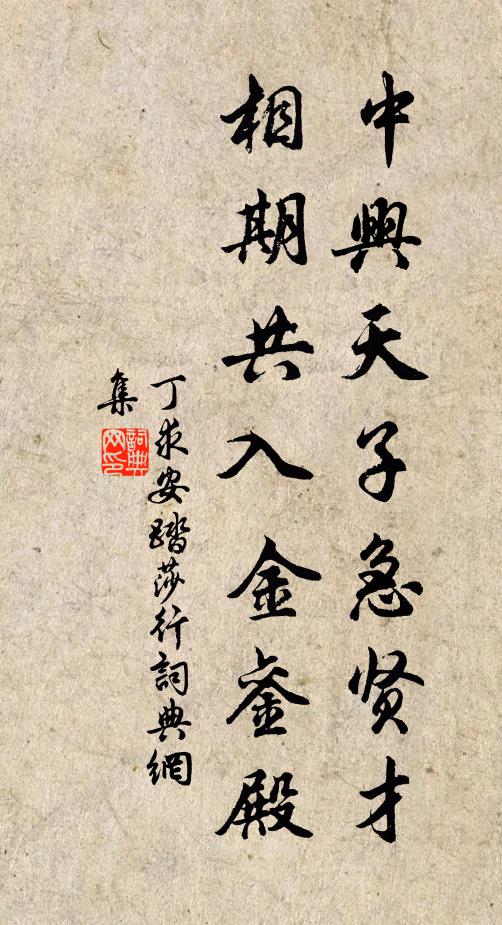 中興天子急贤才
相期共入金銮殿
丁求安踏莎行詞典網
集
詞典网印